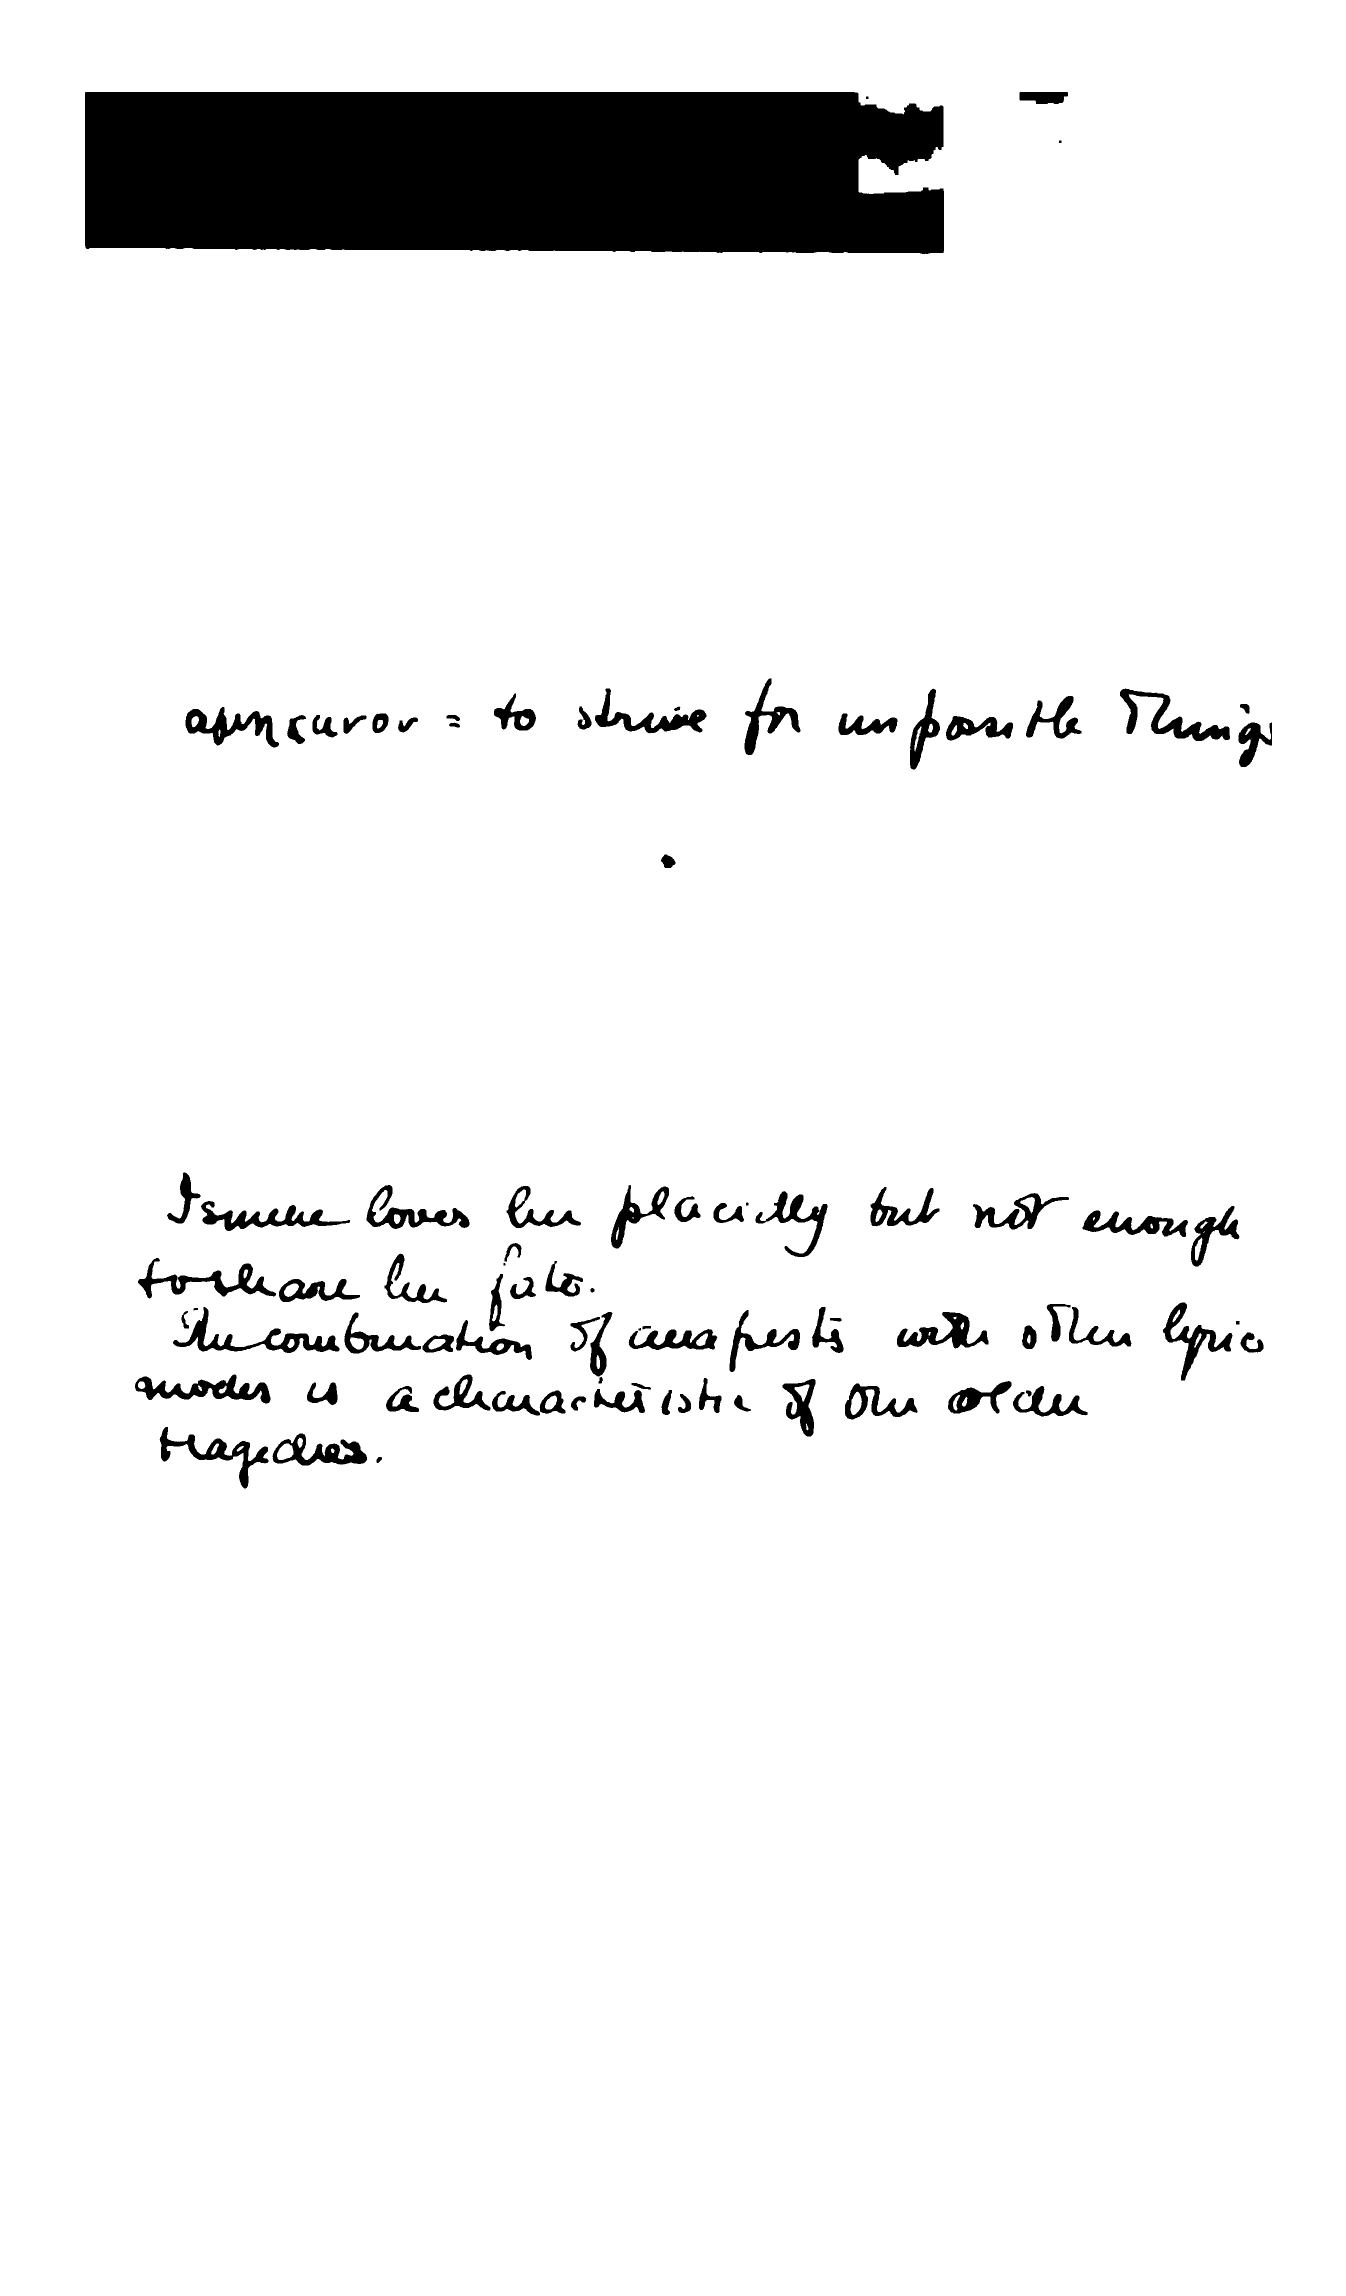 αμηχανον = to strive for impossible things
Ismene loves her placidly but not enough
to share her fate.
The combination of anapests with other lyric
modes is a characteristic of older
tragedies.